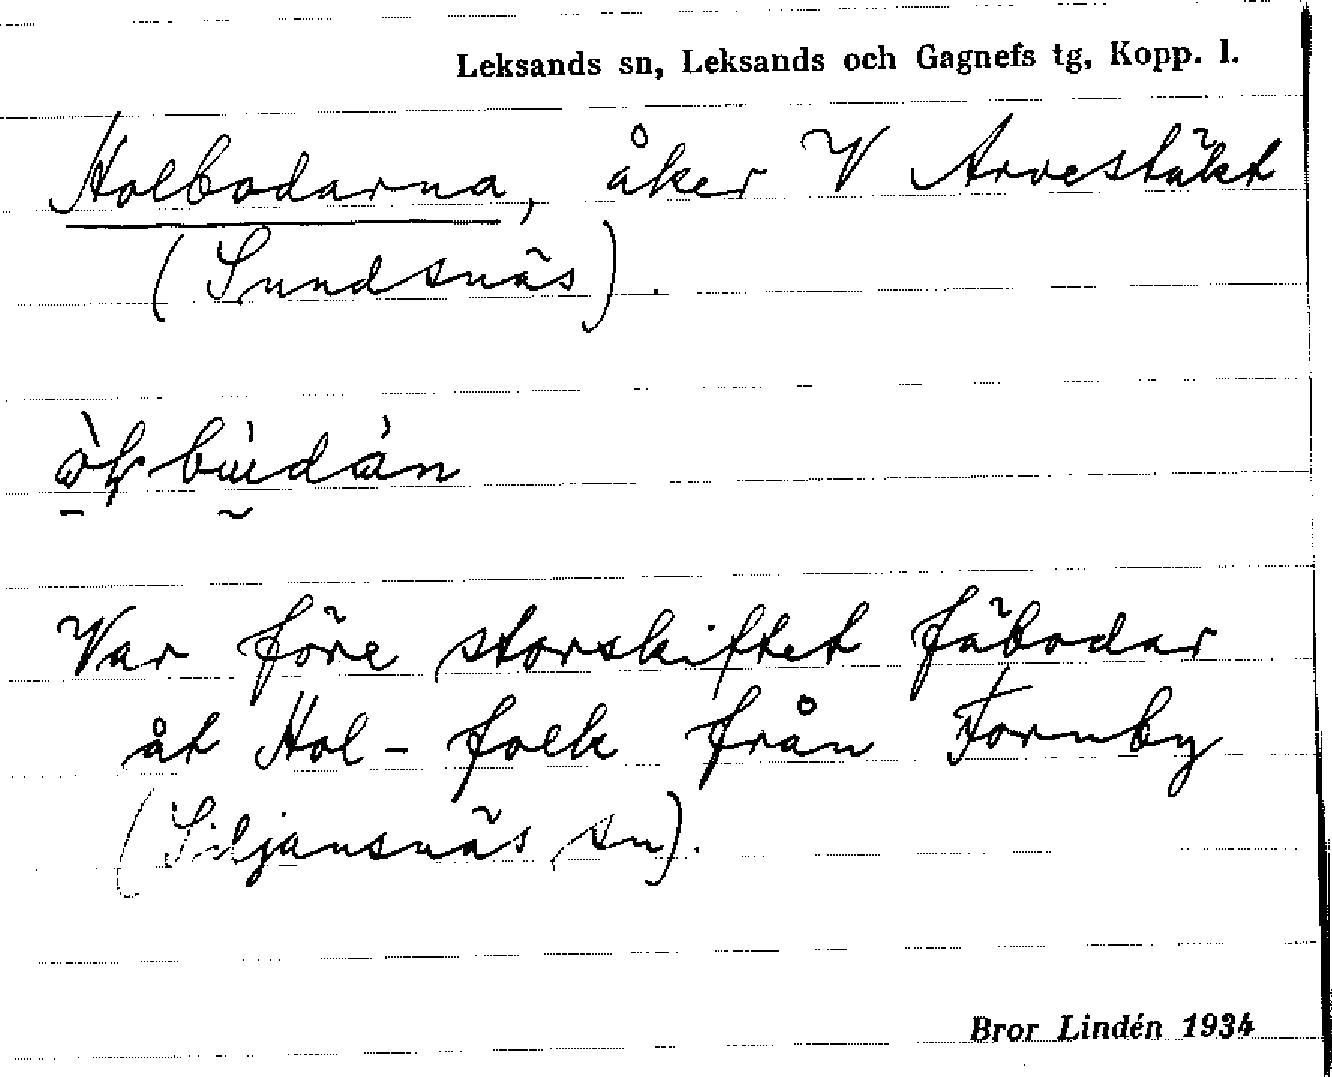 Leksands sn, Leksands och Gagnefs tg, Kopp. l.
Holbodarna, åker V Arvestäkt
(Sundsnäs).
Var före storskiftet fäbodar
åt Hol-folk från Fornby
(Siljansnäs sn).
Bror Lindén 1934